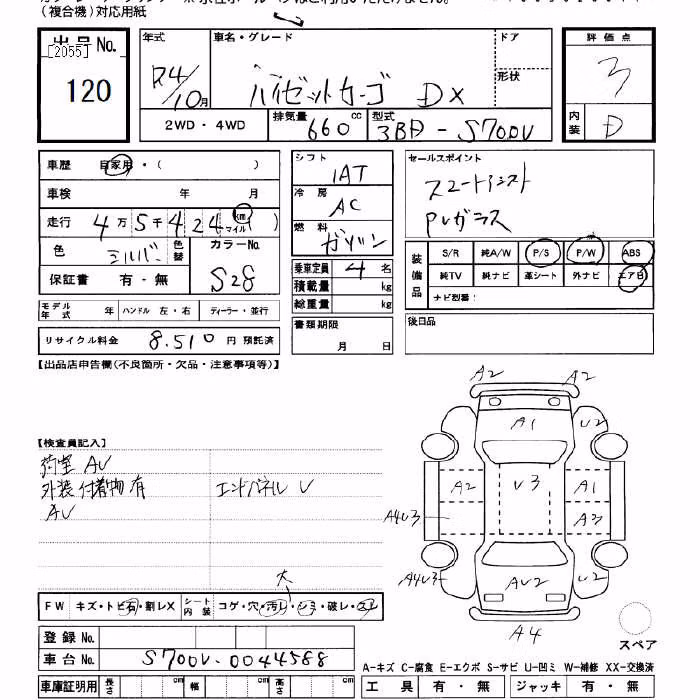 (複合機)対応用紙
出品No.
[2055]
120
年式
R4/10月
車名・グレード
ハイゼットカーゴ DX
ドア
形状
2WD・4WD
排気量 660 cc
型式 3BD-S700V
評価点
3
内装 D
車歴 自家用・( )
車検 年 月
走行 4万5千424 km マイル ( )
色 シルバー
色替
カラーNo. S28
保証書 有・無
シフト IAT
冷房 AC
燃料 ガソリン
乗車定員 4 名
積載量 kg
総重量 kg
セールスポイント
スマートアシスト
PVガラス
装備品
S/R 純A/W P/S P/W ABS
純TV 純ナビ 革シート 外ナビ エアB
ナビ型番:
モデル年式 年 ハンドル 左・右 ディーラー・並行
書類期限
月 日
後日品
リサイクル料金 8.510 円 預託済
【出品店申告欄(不良箇所・欠品・注意事項等)】
【検査員記入】
荷室 AU
外装 付着物有 エンドパネル U
AU
A2 A2
A1 U2
A2 U3 A1
A4U3 A2
A4U3 AU2 U2
A4
大
FW キズ・トビ石・割レX
シート内装 コゲ・穴・汚レ・シミ・破レ・スレ
登録No.
車台No. S700V-0044588
スペア
A-キズ C-腐食 E-エクボ S-サビ U-凹ミ W-補修 XX-交換済
車庫証明用 長さ cm 幅 cm 高さ cm
工具 有・無 ジャッキ 有・無